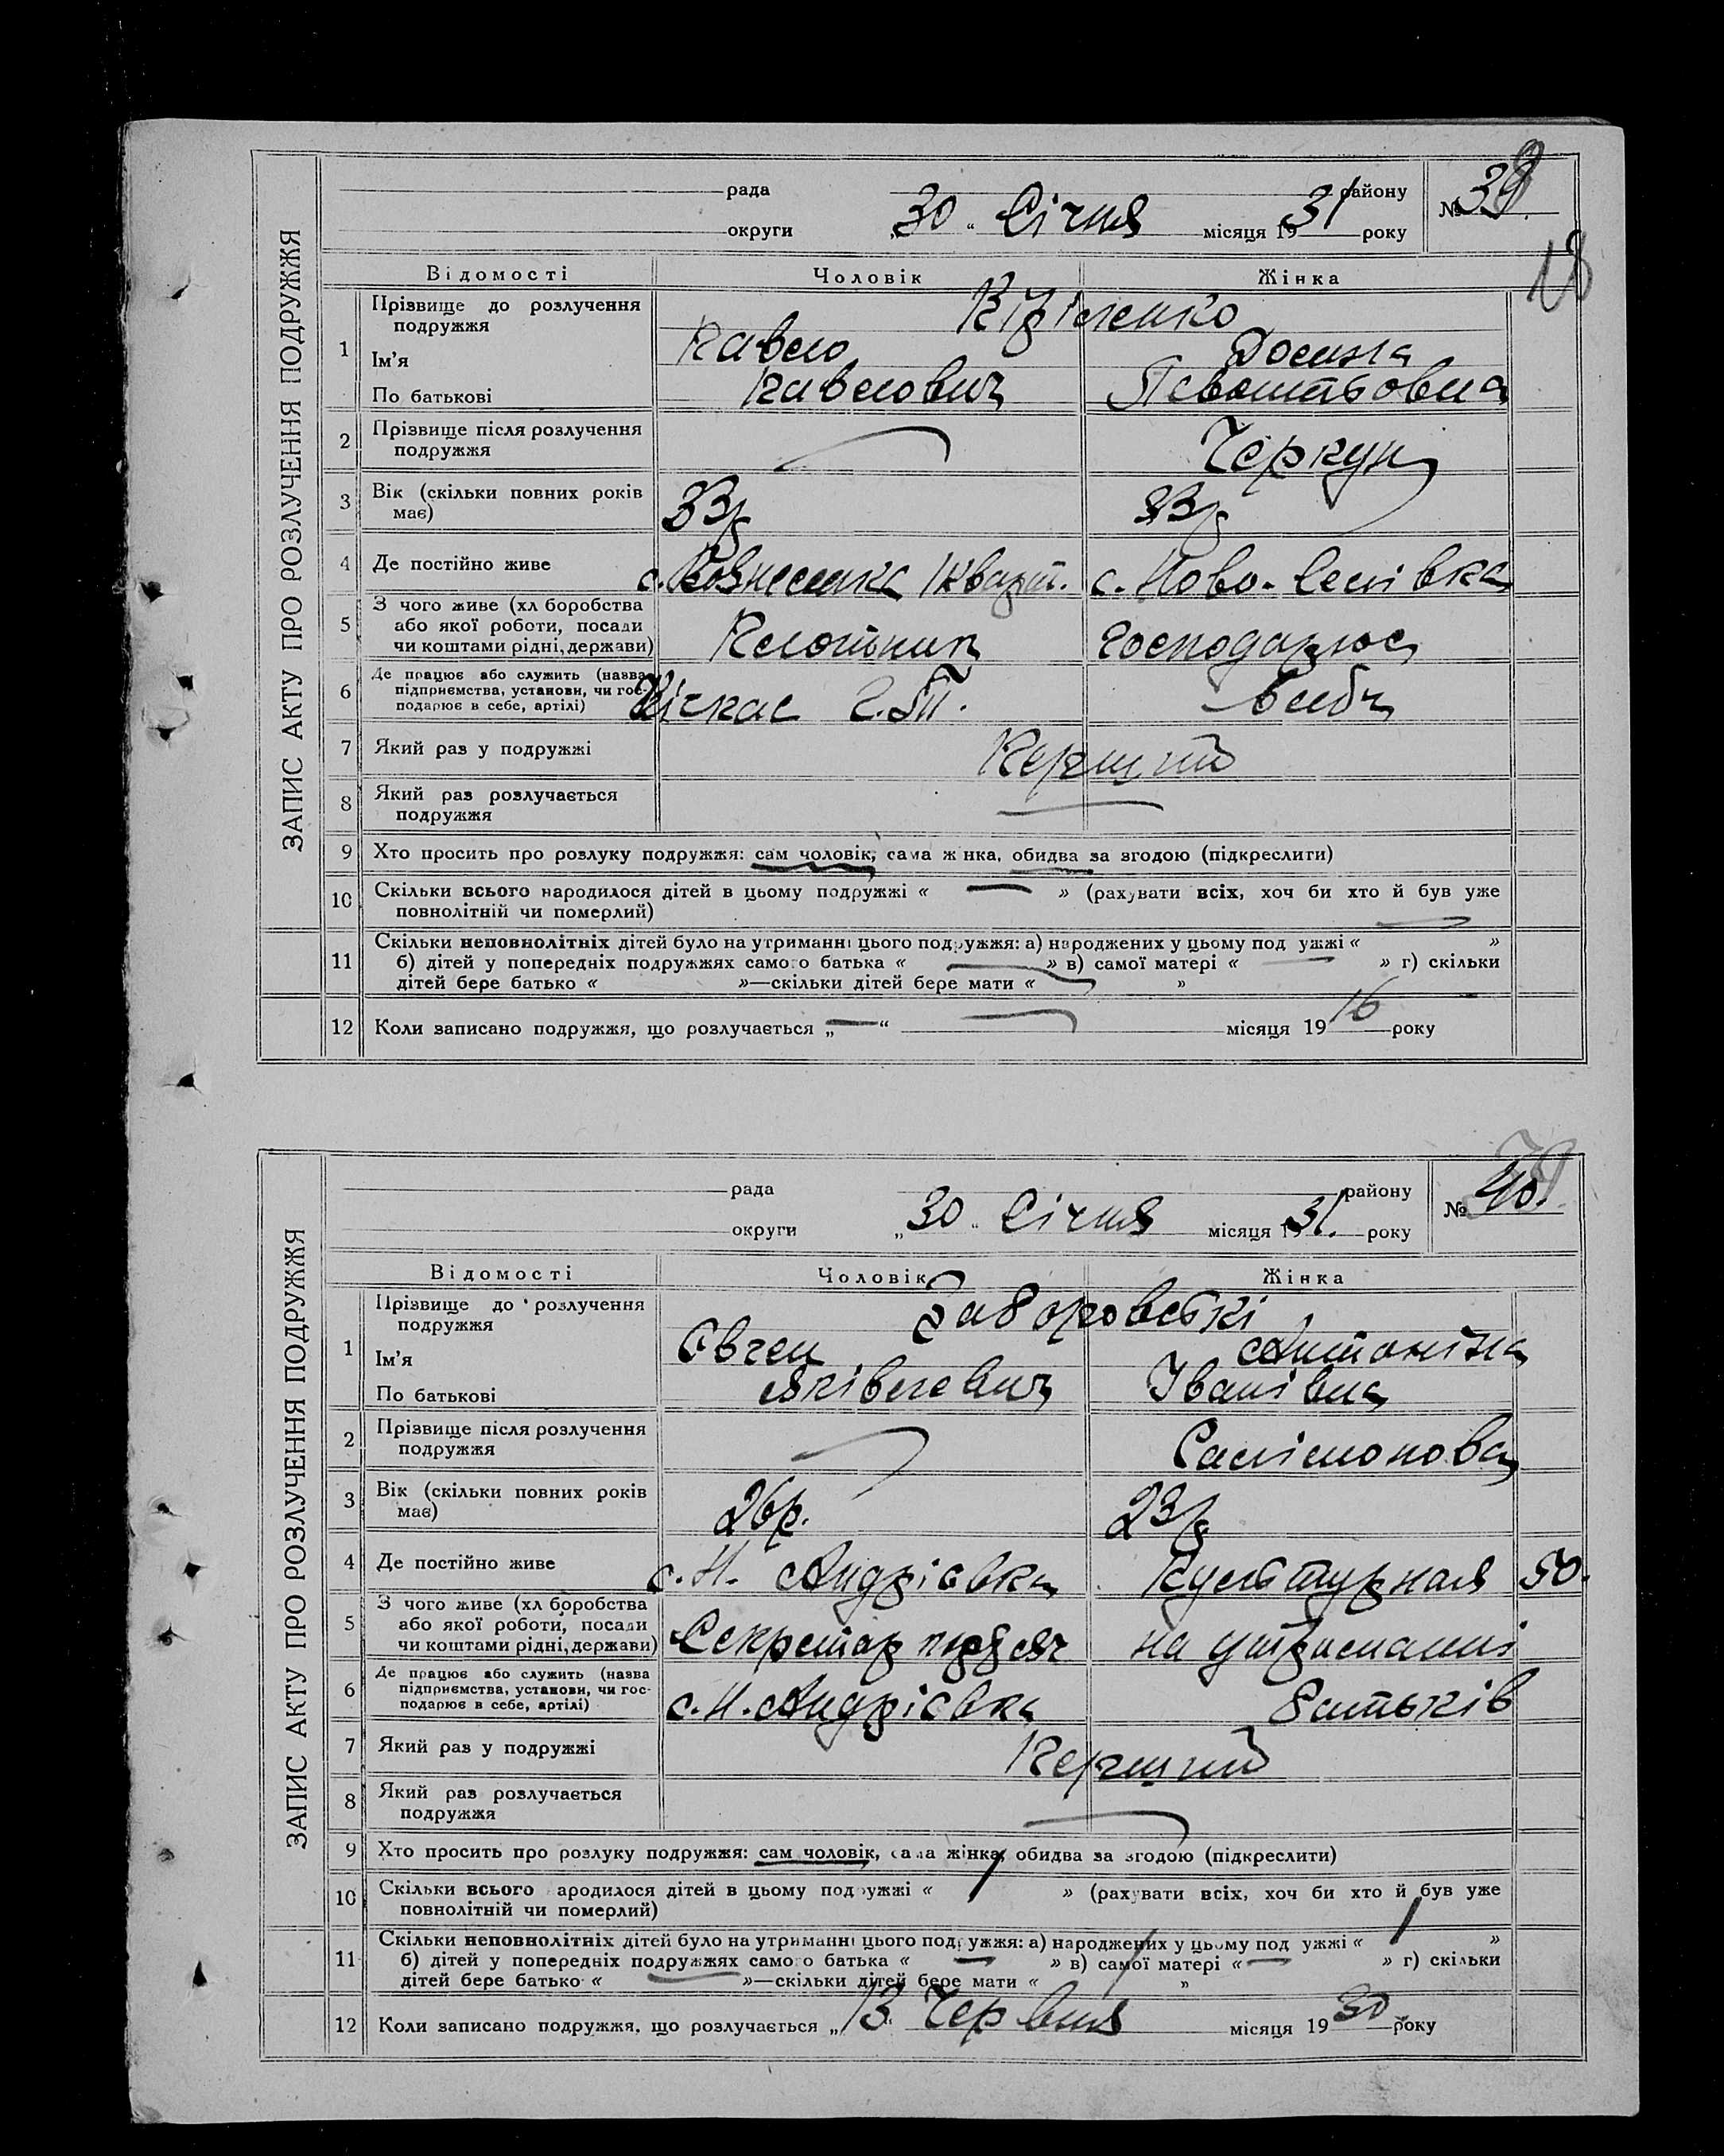 ЗАПИС АКТУ ПРО РОЗЛУЧЕННЯ ПОДРУЖЖЯ
рада району № 39
округи „30“ Січня місяця 1931 року
18
Відомості Чоловік Жінка
1 Прізвище до розлучення подружжя Кіріленко
Ім'я Павло Досина
По батькові Павлович
2 Прізвище після розлучення подружжя Черкун
3 Вік (скільки повних років має) 33 р 33 р
4 Де постійно живе с. Вознесенка с. Ново-
5 З чого живе (хліборобства або якої роботи, посади чи коштами рідні, держави) Плотник господарює
6 Де працює або служить (назва підприємства, установи, чи господарює в себе, артілі) Кічкас в себе
7 Який раз у подружжі Перший
8 Який раз розлучається подружжя
9 Хто просить про розлуку подружжя: сам чоловік, сама жінка, обидва за згодою (підкреслити)
10 Скільки всього народилося дітей в цьому подружжі « — » (рахувати всіх, хоч би хто й був уже
повнолітній чи померлий)
11 Скільки неповнолітніх дітей було на утриманні цього подружжя: а) народжених у цьому подружжі « — »
б) дітей у попередніх подружжях самого батька « — » в) самої матері « — » г) скільки
дітей бере батько « »—скільки дітей бере мати « — »
12 Коли записано подружжя, що розлучається „—“ — місяця 1916 року
ЗАПИС АКТУ ПРО РОЗЛУЧЕННЯ ПОДРУЖЖЯ
рада району № 40.
округи „30“ Січня місяця 1931. року
Відомості Чоловік Жінка
1 Прізвище до розлучення подружжя Заворовські
Ім'я Овген Антоніна
По батькові Яківлевич Іванівна
2 Прізвище після розлучення подружжя
3 Вік (скільки повних років має) 26 р. 23 р
4 Де постійно живе с. Н. Андріовка Культурная 50.
5 З чого живе (хліборобства або якої роботи, посади чи коштами рідні, держави) Секретар на утриманні
6 Де працює або служить (назва підприємства, установи, чи господарює в себе, артілі) с. Н. Андріовка батьків
7 Який раз у подружжі Перший
8 Який раз розлучається подружжя
9 Хто просить про розлуку подружжя: сам чоловік, сама жінка, обидва за згодою (підкреслити)
10 Скільки всього народилося дітей в цьому подружжі « 1 » (рахувати всіх, хоч би хто й був уже
повнолітній чи померлий)
11 Скільки неповнолітніх дітей було на утриманні цього подружжя: а) народжених у цьому подружжі « 1 »
б) дітей у попередніх подружжях самого батька « — » в) самої матері « — » г) скільки
дітей бере батько « — »—скільки дітей бере мати « 1 »
12 Коли записано подружжя, що розлучається „13 Червня місяця 1930 року